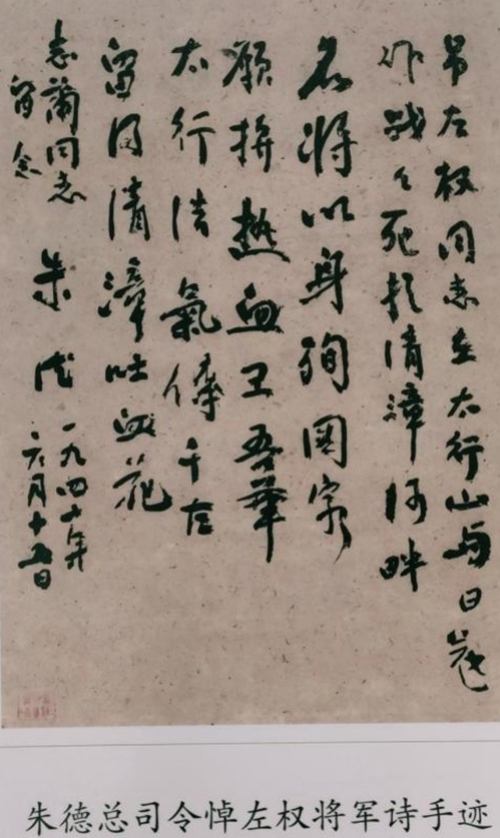 吊左权同志在太行山与日寇
作战々死於清漳河畔
名将以身殉國家
願拚热血卫吾華
太行浩氣傳千古
留得清漳吐血花
志蘭同志
留念
朱德
一九四十年
六月十五日
朱德总司令悼左权将军诗手迹